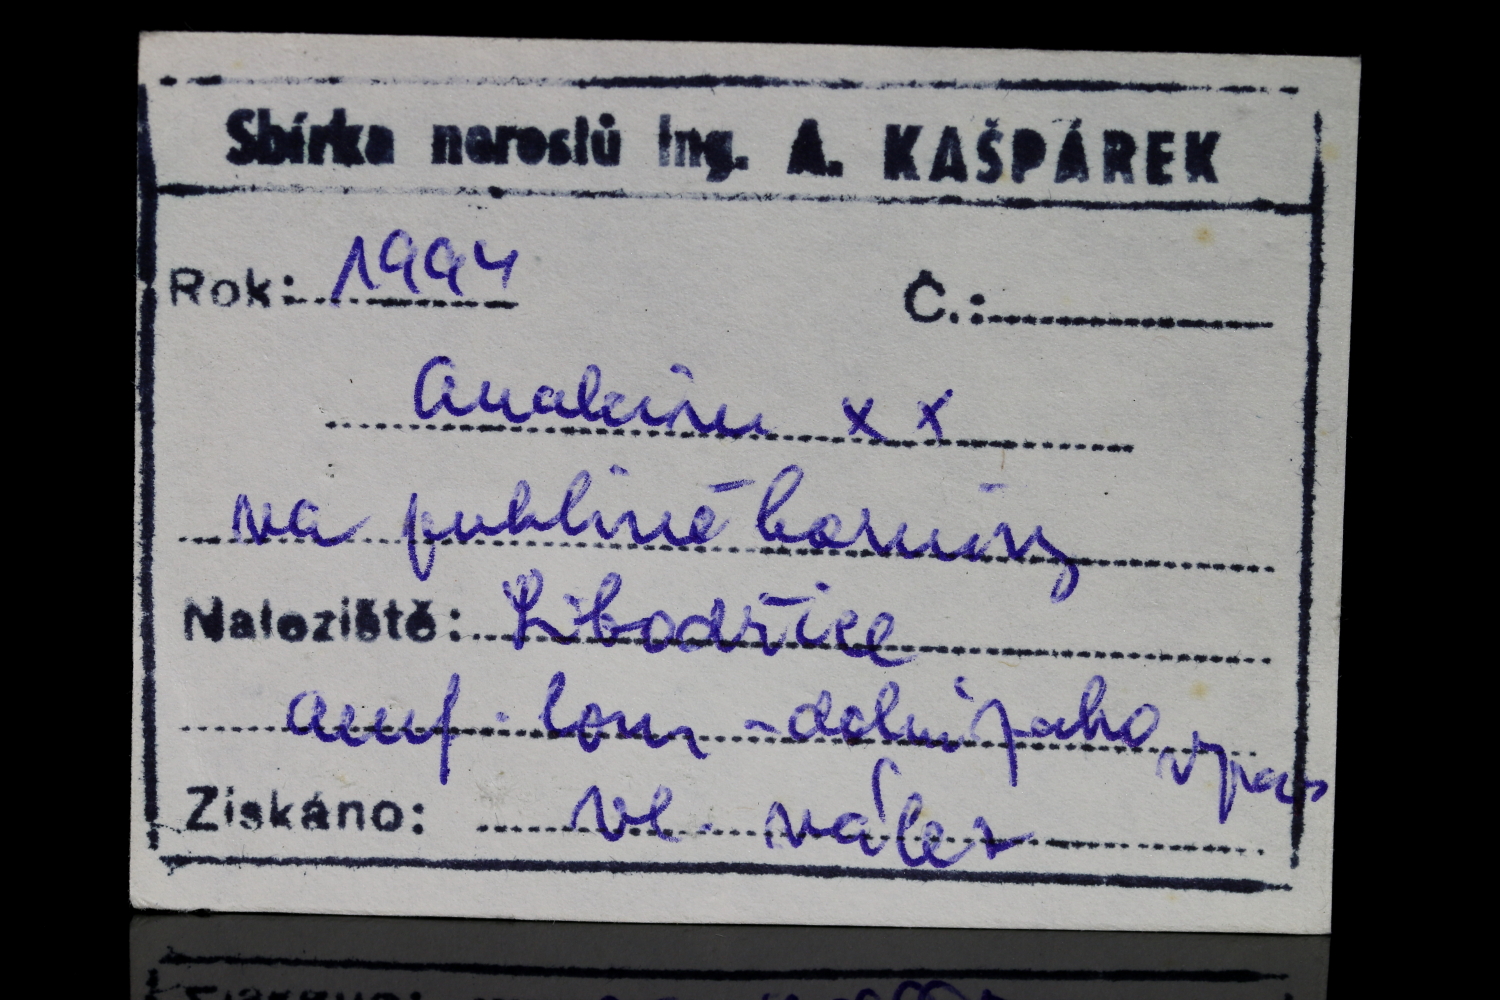 Sbírka nerostů Ing. A. KAŠPÁREK
Rok: 1994 Č.:
Analcim xx
na puklině horniny
Naleziště: Libodřice
amf. lom - dolní
Získáno: vl. nález